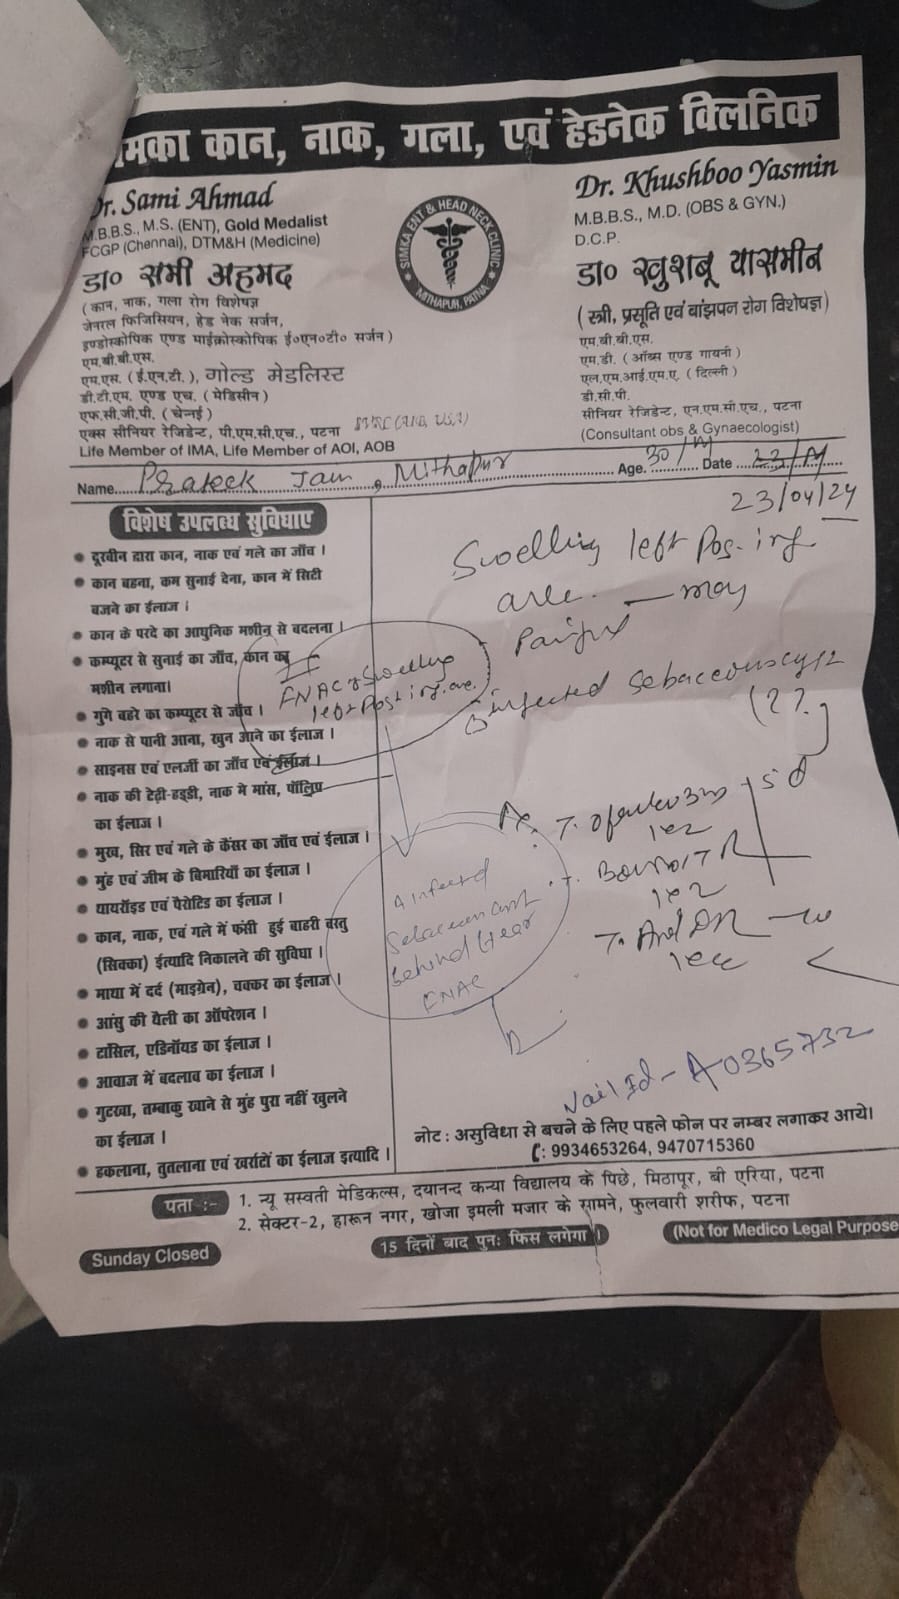 मका कान, नाक, गला, एवं हेडनेक क्लिनिक
Dr. Sami Ahmad
M.B.B.S., M.S. (ENT), Gold Medalist
FCGP (Chennai), DTM&H (Medicine)
डा० समी अहमद
(कान, नाक, गला रोग विशेषज्ञ
जेनरल फिजिसियन, हेड नेक सर्जन,
इण्डोस्कोपिक एण्ड माईक्रोस्कोपिक ई०एन०टी० सर्जन)
एम.बी.बी.एस.
एम.एस. (ई.एन.टी.), गोल्ड मेडलिस्ट
डी.टी.एम. एण्ड एच. (मेडिसीन)
एफ.सी.जी.पी. (चेन्नई)
एक्स सीनियर रेजिडेन्ट, पी.एम.सी.एच., पटना
Life Member of IMA, Life Member of AOI, AOB
SIMKA ENT & HEAD NECK CLINIC
MITHAPUR, PATNA
Dr. Khushboo Yasmin
M.B.B.S., M.D. (OBS & GYN.)
D.C.P.
डा० खुशबू यासमीन
(स्त्री, प्रसूति एवं बांझपन रोग विशेषज्ञ)
एम.बी.बी.एस.
एम.डी. (ऑब्स एण्ड गायनी)
एल.एम.आई.एम.ए. (दिल्ली)
डी.सी.पी.
सीनियर रेजिडेन्ट, एन.एम.सी.एच., पटना
(Consultant obs & Gynaecologist)
Name Prateek Jain, Mithapur Age. 30/M Date
23/04/24
विशेष उपलब्ध सुविधाए
दूरवीन द्वारा कान, नाक एवं गले का जाँच।
कान बहना, कम सुनाई देना, कान में सिटी
बजने का ईलाज।
कान के परदे का आधुनिक मशीन से बदलना।
कम्प्यूटर से सुनाई का जाँच, कान का
मशीन लगाना।
गुंगे बहरे का कम्प्यूटर से जाँच।
नाक से पानी आना, खुन आने का ईलाज।
साइनस एवं एलर्जी का जाँच एवं ईलाज।
नाक की टेढ़ी-हड्डी, नाक मे मांस, पॉलिप
का ईलाज।
मुख, सिर एवं गले के कैंसर का जाँच एवं ईलाज।
मुंह एवं जीभ के बिमारियाँ का ईलाज।
थायरॉइड एवं पैरोटिड का ईलाज।
कान, नाक, एवं गले में फंसी हुई बाहरी वस्तु
(सिक्का) ईत्यादि निकालने की सुविधा।
माथा में दर्द (माइग्रेन), चक्कर का ईलाज।
आंसु की थैली का ऑपरेशन।
टांसिल, एडिनॉयड का ईलाज।
आवाज में बदलाव का ईलाज।
गुटखा, तम्बाकु खाने से मुंह पुरा नहीं खुलने
का ईलाज।
हकलाना, तुतलाना एवं खर्राटों का ईलाज इत्यादि।
Swelling left
Painful
infected sebaceous cyst
(??
FNAC Swelling
left
infected
Sebaceous cyst
behind ear
FNAC
Nail Id - A0365732
नोट: असुविधा से बचने के लिए पहले फोन पर नम्बर लगाकर आये।
: 9934653264, 9470715360
पता :- 1. न्यू सस्वती मेडिकल्स, दयानन्द कन्या विद्यालय के पिछे, मिठापुर, बी एरिया, पटना
2. सेक्टर-2, हारून नगर, खोजा इमली मजार के सामने, फुलवारी शरीफ, पटना
Sunday Closed
15 दिनों बाद पुनः फिस लगेगा।
(Not for Medico Legal Purpose